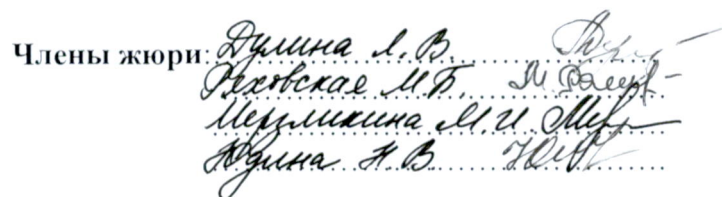 Члены жюри: Дулина Л. В.
Ряховская М. Б.
Мерзликина М. И.
Юдина Н. В.